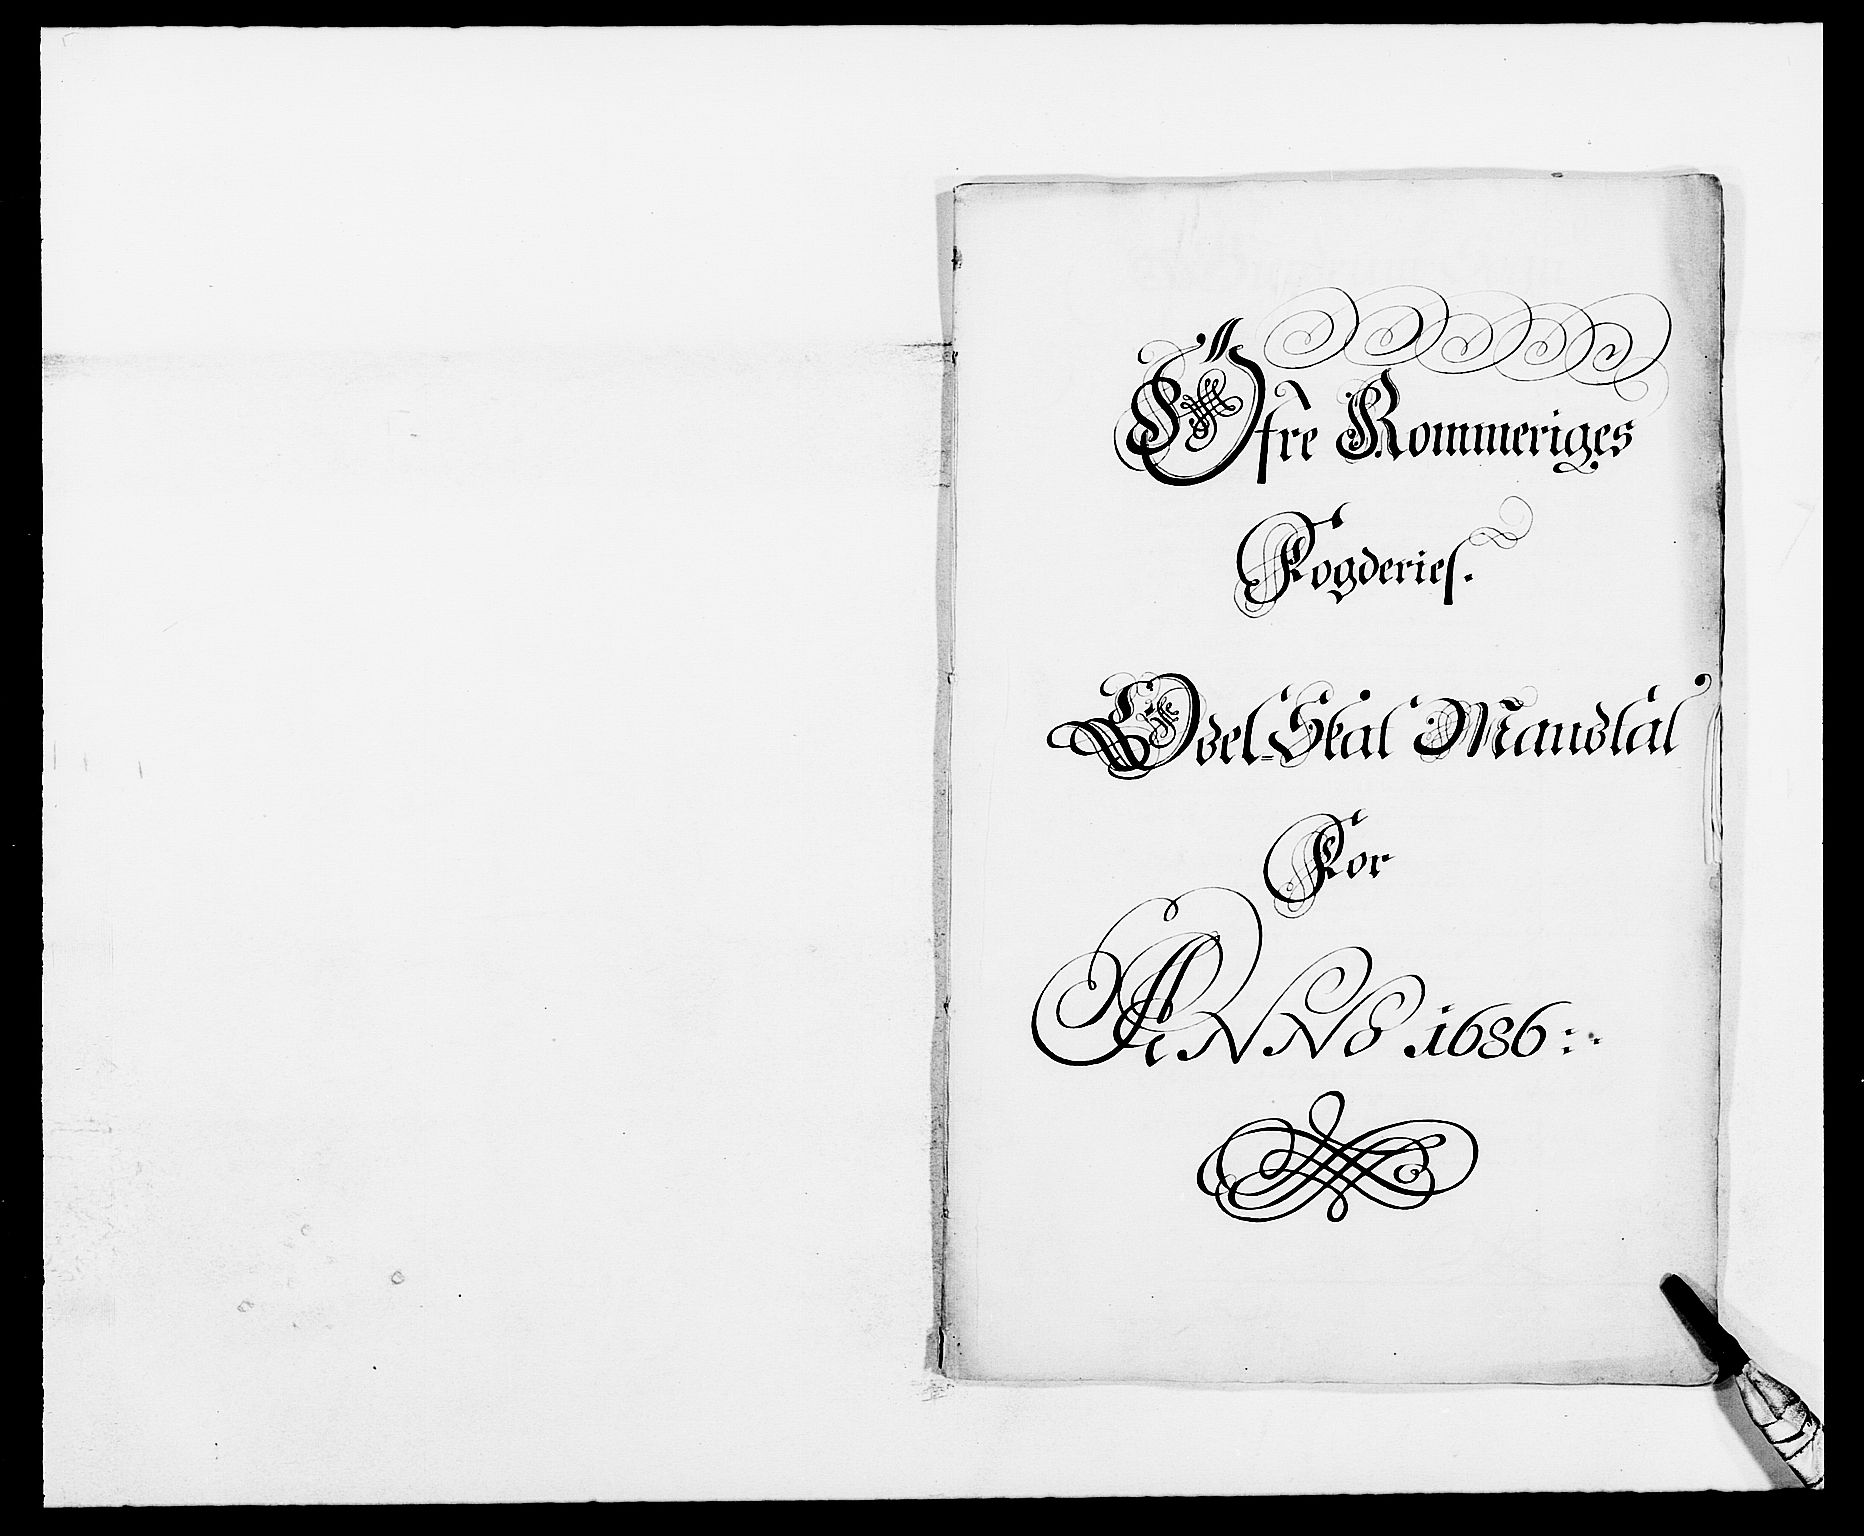 Öfre Rommeriges
Fogderies.
Odel-Skat Mandtal
For
ANNO 1686: